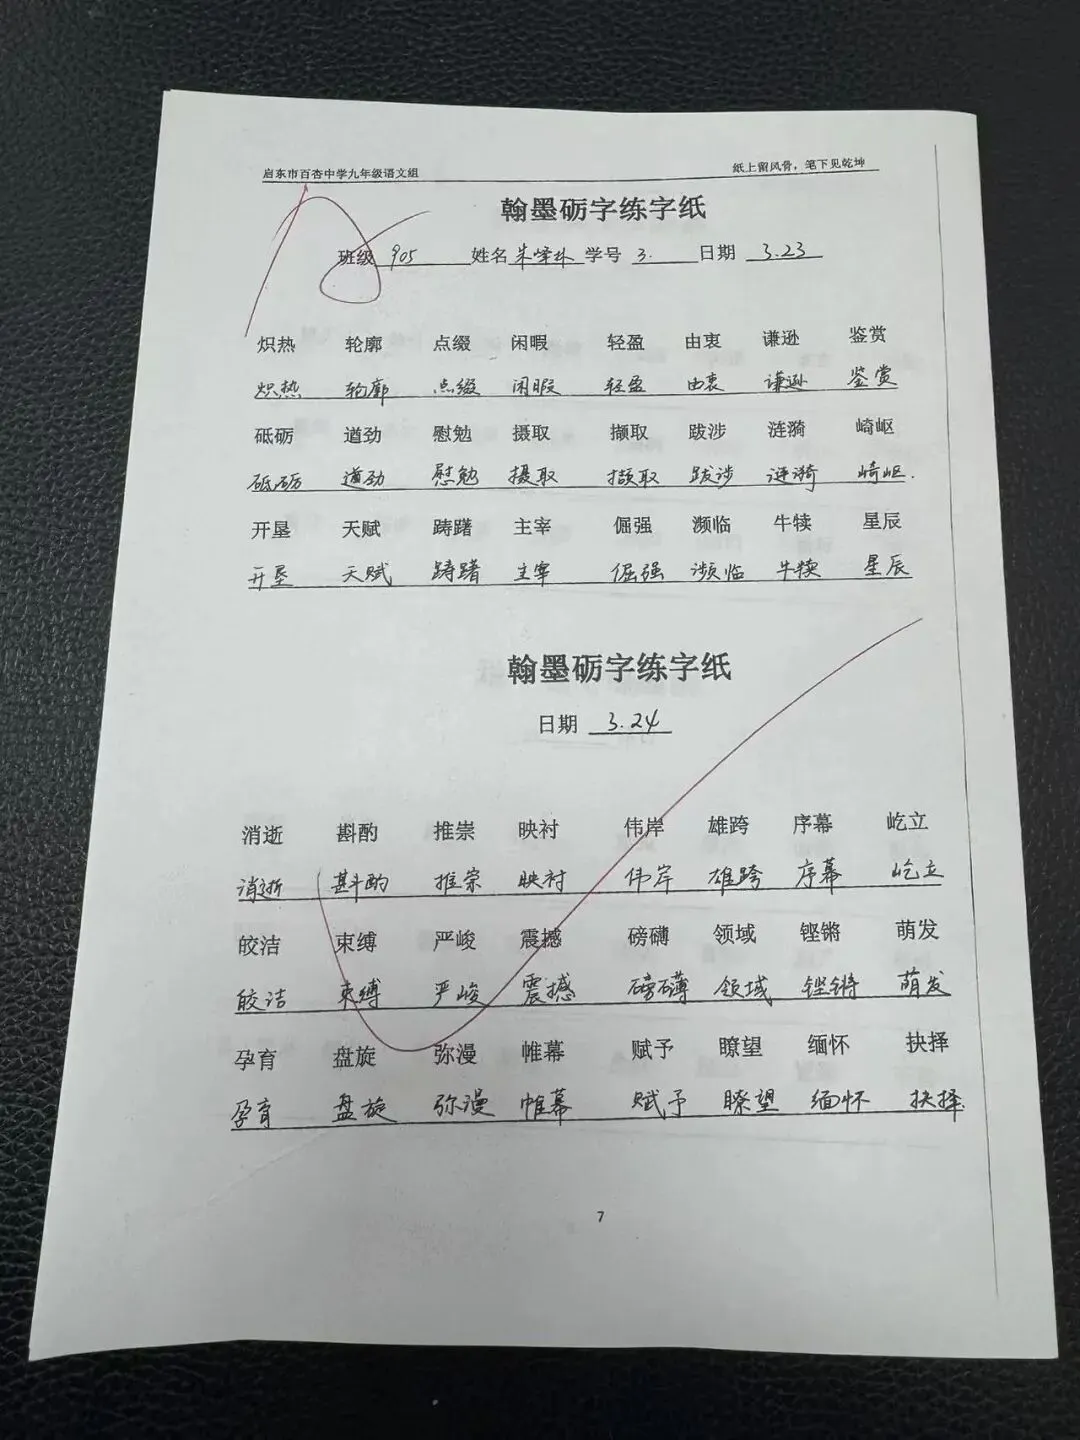 启东市百杏中学九年级语文组 纸上留风骨，笔下见乾坤
翰墨砺字练字纸
班级 905 姓名 朱峰 学号 3. 日期 3.23
炽热 轮廓 点缀 闲暇 轻盈 由衷 谦逊 鉴赏
炽热 轮廓 点缀 闲暇 轻盈 由衷 谦逊 鉴赏
砥砺 遒劲 慰勉 摄取 撷取 跋涉 涟漪 崎岖
砥砺 遒劲 慰勉 摄取 撷取 跋涉 涟漪 崎岖.
开垦 天赋 踌躇 主宰 倔强 濒临 牛犊 星辰
开垦 天赋 踌躇 主宰 倔强 濒临 牛犊 星辰
翰墨砺字练字纸
日期 3.24
消逝 斟酌 推崇 映衬 伟岸 雄跨 序幕 屹立
消逝 斟酌 推崇 映衬 伟岸 雄跨 序幕 屹立
皎洁 束缚 严峻 震撼 磅礴 领域 铿锵 萌发
皎洁 束缚 严峻 震撼 磅礴 领域 铿锵 萌发
孕育 盘旋 弥漫 帷幕 赋予 瞭望 缅怀 抉择
孕育 盘旋 弥漫 帷幕 赋予 瞭望 缅怀 抉择
7